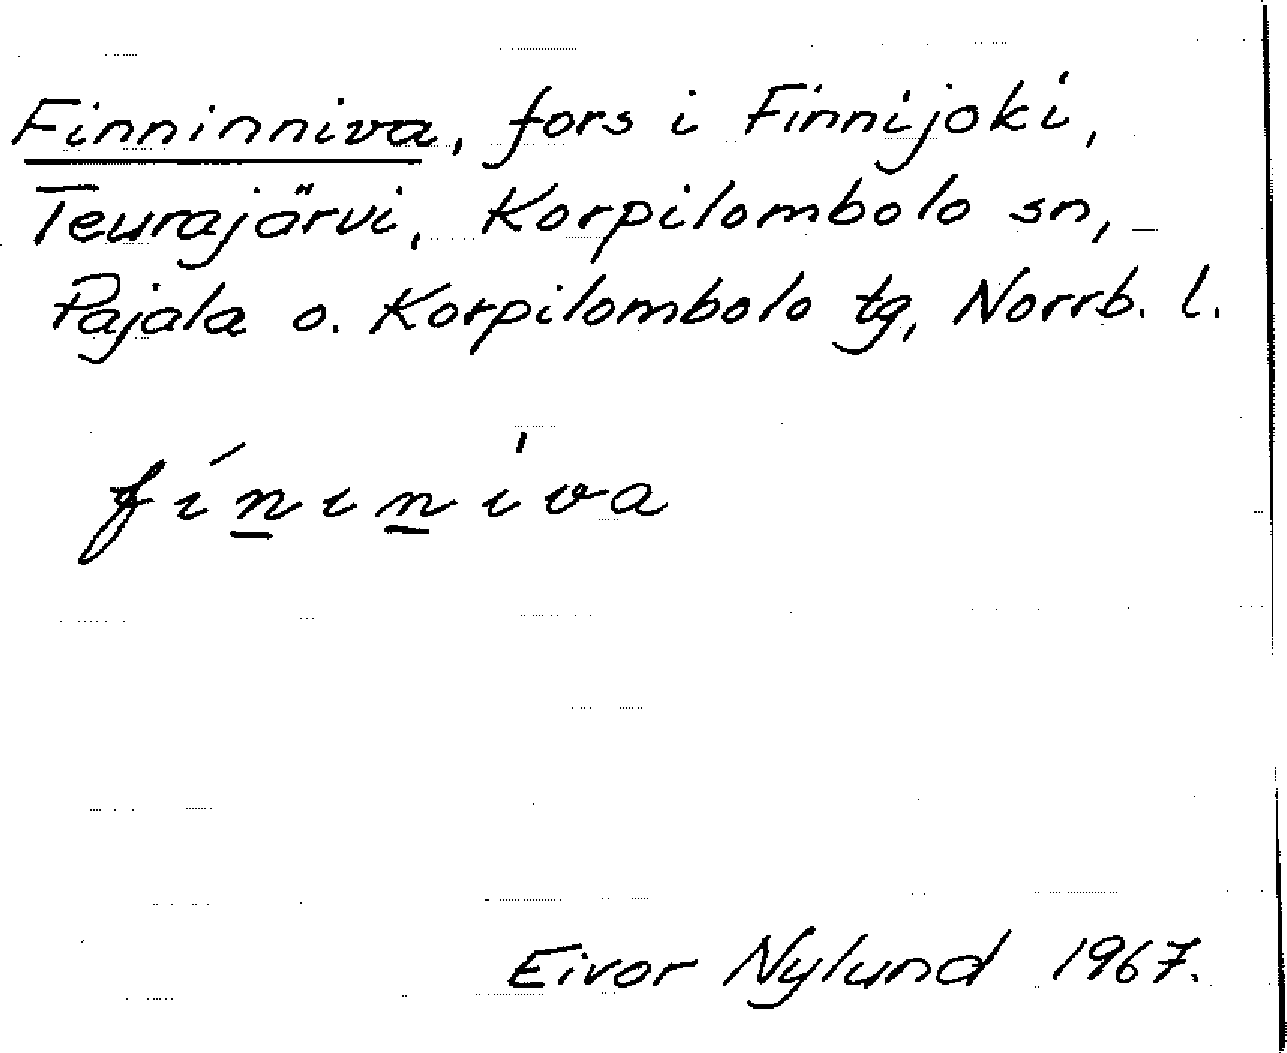 Finninniva, fors i Finnijoki,
Teurajärvi, Korpilombolo sn,
Pajala o. Korpilombolo tg, Norrb. l.
fíni̱nìva
Eivor Nylund 1967.